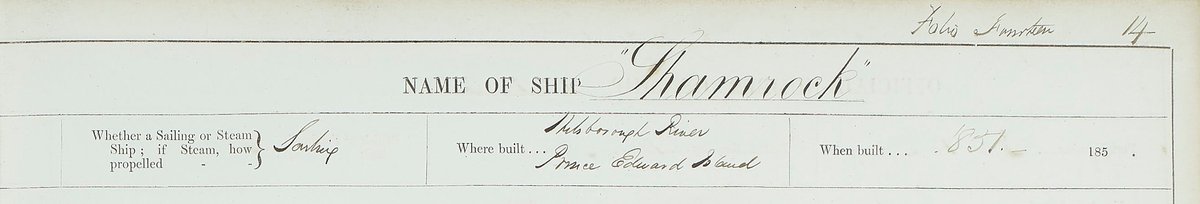 Folio Fourteen 14
NAME OF SHIP "Shamrock"
Whether a Sailing or Steam
Ship ; if Steam, how
propelled - -
Sailing
Where built . . .
Hilsborough River
Prince Edward Island
When built . . . 1851. - 185 .